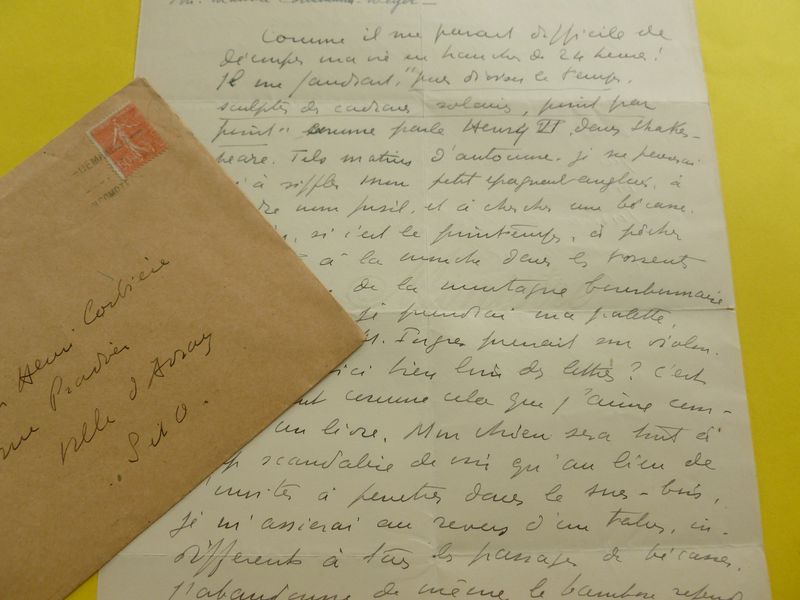 Comme il me parait difficile de
découper ma vie en tranches de 24 heures!
Il me faudrait, "pour diviser le temps,
sculpter des cadrans solaires, point par
point" comme parle Henry VI, dans Shakes-
peare. Tels matins d'automne, je ne penserai
à siffler mon petit épagneul anglais, à
mon fusil, et à chercher une bécasse.
si c'est le printemps, à pêcher
à la mouche dans les torrents
de la montagne bourbonnaise.
je prendrai ma palette,
M. Ingres prenait son violon.
ici bien loin des lettres? C'est
comme cela que j'aime com-
un livre. Mon chien sera tout à
scandalisé de voir qu'au lieu de
inviter à pénétrer dans le sous-bois,
je m'assierai au revers d'un talus, in-
différents à tous les passages de bécasses.
J'abandonne de même le bambou refendu
Henri Corbière
rue Pradier
Ville d'Avray
S et O.